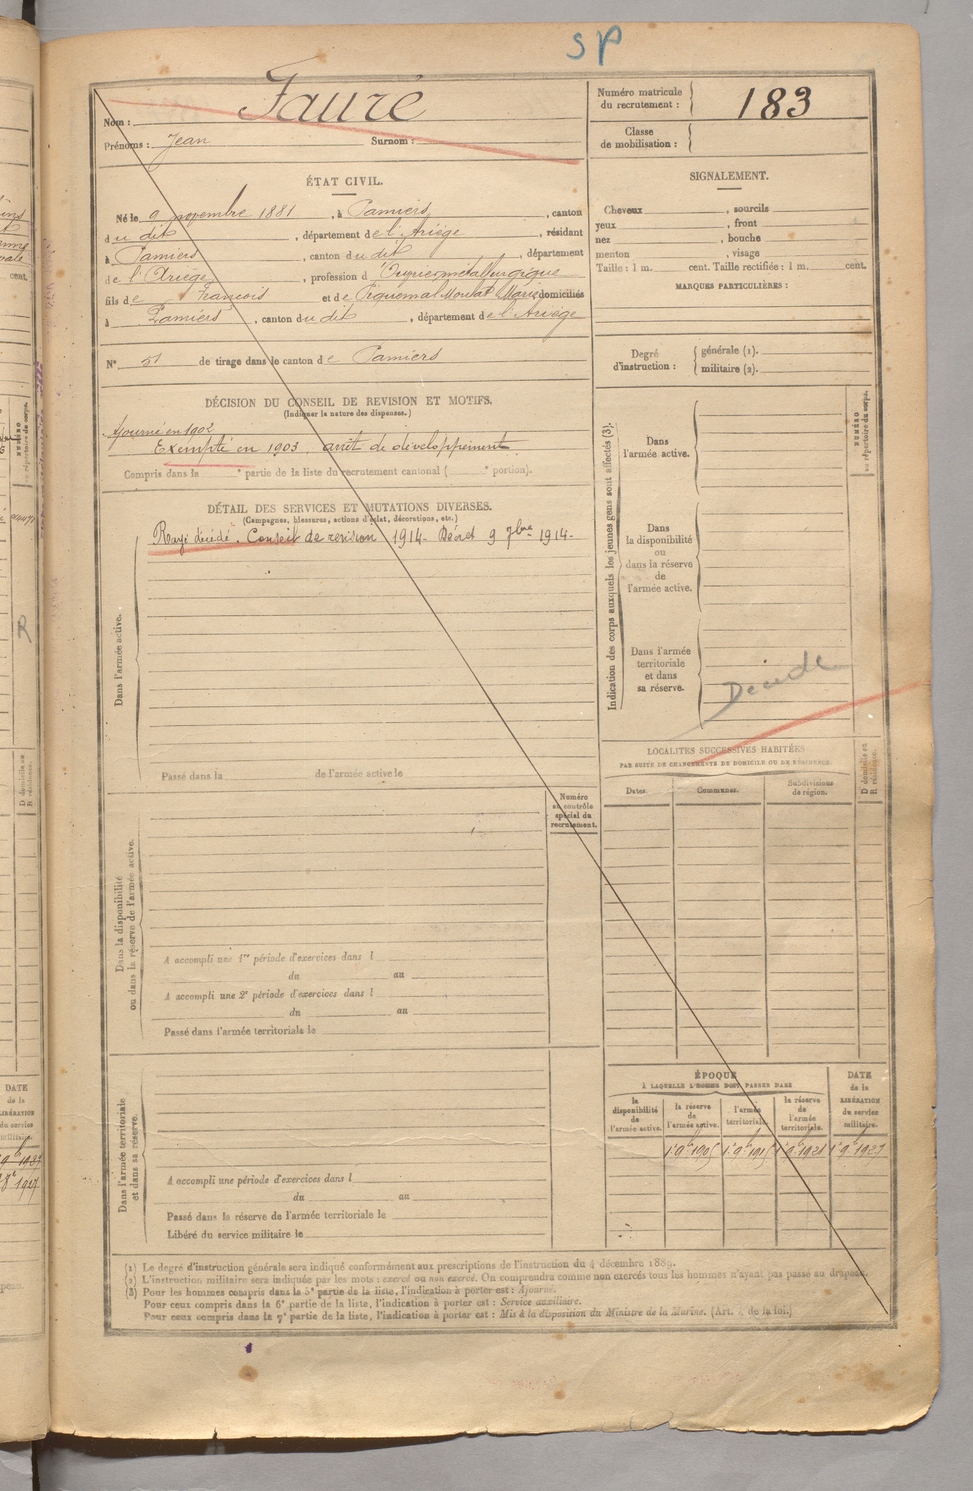 SP
Nom : Fauré
Prénoms : Jean Surnom :
Numéro matricule du recrutement : 183
Classe de mobilisation :
ÉTAT CIVIL.
Né le 9 novembre 1881, à Pamiers, canton
du dit, département de l'Ariège, résidant
à Pamiers, canton du dit, département
de l'Ariège, profession d'Ouvrier métallurgique
fils de François et de Piquemal Marie domiciliés
à Pamiers, canton du dit, département de l'Ariège
N° 51 de tirage dans le canton de Pamiers
SIGNALEMENT.
Cheveux , sourcils
yeux , front
nez , bouche
menton , visage
Taille : 1 m. cent. Taille rectifiée : 1 m. cent.
MARQUES PARTICULIÈRES :
Degré d'instruction : générale (1).
militaire (2).
DÉCISION DU CONSEIL DE REVISION ET MOTIFS.
(Indiquer la nature des dispenses.)
Ajourné en 1902
Exempté en 1903 arrêt de développement
Compris dans la e partie de la liste du recrutement cantonal ( e portion).
DÉTAIL DES SERVICES ET MUTATIONS DIVERSES.
(Campagnes, blessures, actions d'éclat, décorations, etc.)
Rayé décédé. Conseil de revision 1914. Décret 9 7bre 1914.
Dans l'armée active.
Passé dans la de l'armée active le
Numéro au contrôle spécial du recrutement.
Dans la disponibilité
ou dans la réserve de l'armée active.
A accompli une 1re période d'exercices dans l
du au
A accompli une 2e période d'exercices dans l
du au
Passé dans l'armée territoriale le
Dans l'armée territoriale
et dans sa réserve.
A accompli une période d'exercices dans l
du au
Passé dans la réserve de l'armée territoriale le
Libéré du service militaire le
Indication des corps auxquels les jeunes gens sont affectés (3).
NUMÉRO au répertoire du corps.
Dans
l'armée active.
Dans
la disponibilité
ou
dans la réserve
de
l'armée active.
Dans l'armée
territoriale
et dans
sa réserve.
Décédé
LOCALITÉS SUCCESSIVES HABITÉES
PAR SUITE DE CHANGEMENTS DE DOMICILE OU DE RÉSIDENCE.
D domicile ou
R résidence.
Dates. Communes. Subdivisions de région.
ÉPOQUE
À LAQUELLE L'HOMME DOIT PASSER DANS
la disponibilité de l'armée active.
la réserve de l'armée active.
l'armée territoriale.
la réserve de l'armée territoriale.
DATE de la LIBÉRATION du service militaire.
1 9bre 1905 1 9bre 1915 1 9bre 1921 1 9bre 1927
(1) Le degré d'instruction générale sera indiqué conformément aux prescriptions de l'instruction du 4 décembre 1889.
(2) L'instruction militaire sera indiquée par les mots : exercé ou non exercé. On comprendra comme non exercés tous les hommes n'ayant pas passé au drapeau.
(3) Pour les hommes compris dans la 5e partie de la liste, l'indication à porter est : Ajourné.
Pour ceux compris dans la 6e partie de la liste, l'indication à porter est : Service auxiliaire.
Pour ceux compris dans la 7e partie de la liste, l'indication à porter est : Mis à la disposition du Ministre de la Marine. (Art. 4 de la loi.)